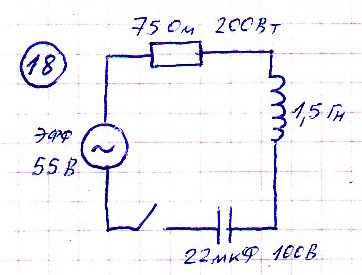 75 Ом 200Вт
18
1,5 Гн
ЭФФ
~
55 В
22мкФ 100В